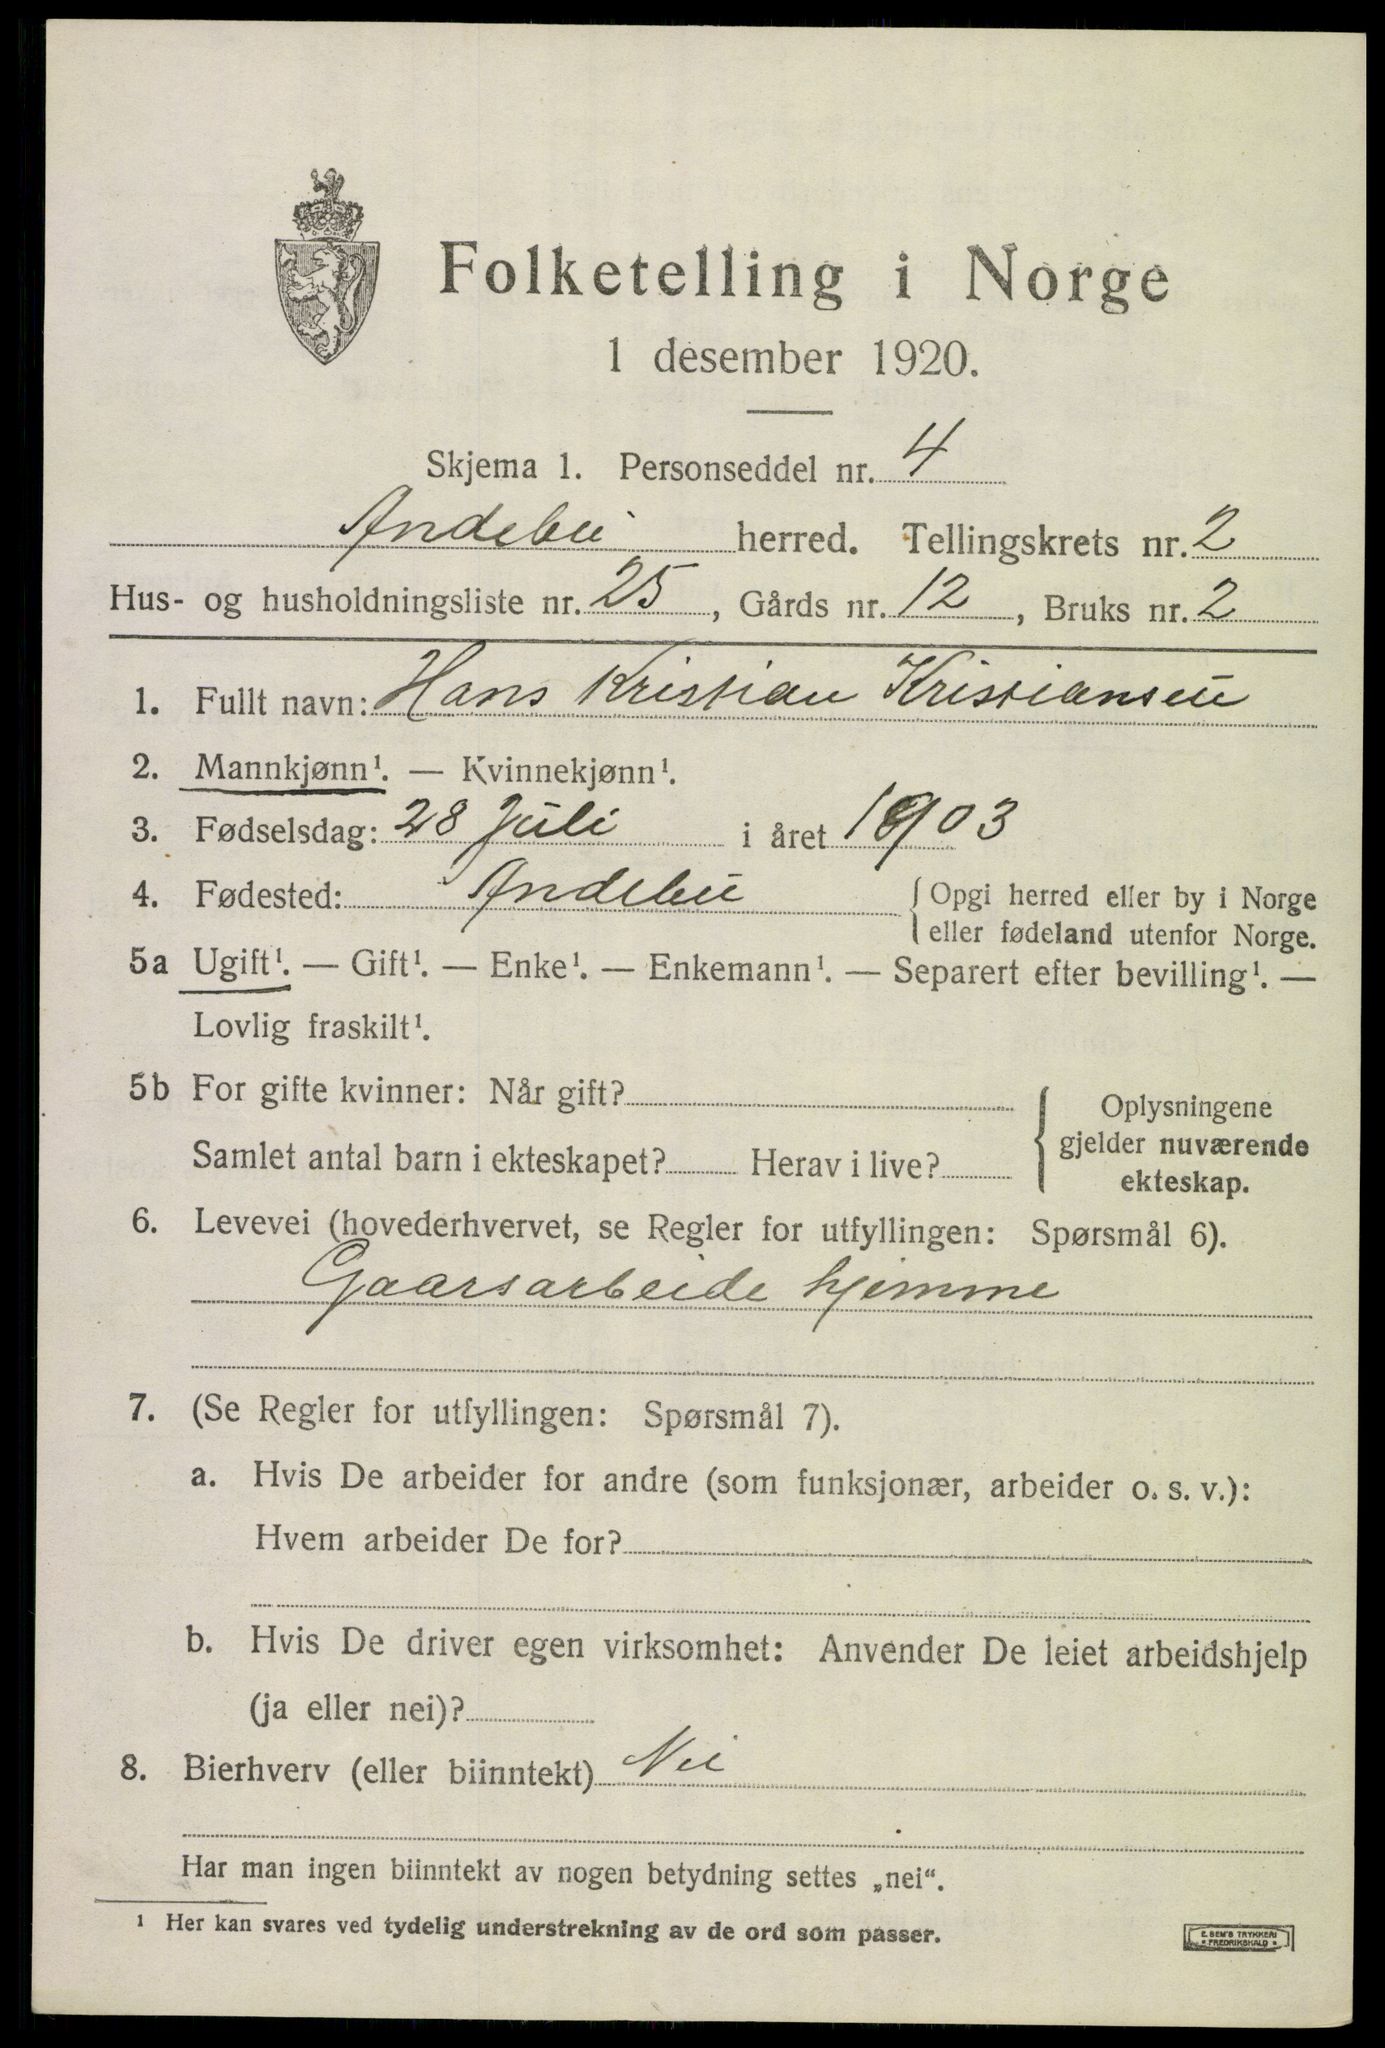 Folketelling i Norge
1 desember 1920.
Skjema 1. Personseddel nr. 4
Andebu herred. Tellingskrets nr. 2
Hus- og husholdningsliste nr. 25, Gårds nr. 12, Bruks nr. 2
1. Fullt navn: Hans Kristian Kristiansen
2. Mannkjønn¹. — Kvinnekjønn¹.
3. Fødselsdag: 28 Juli i året 1903
4. Fødested: Andebu { Opgi herred eller by i Norge
eller fødeland utenfor Norge.
5a Ugift¹. — Gift¹. — Enke¹. — Enkemann¹. — Separert efter bevilling¹. —
Lovlig fraskilt¹.
5b For gifte kvinner: Når gift?
Samlet antal barn i ekteskapet? Herav i live?
{ Oplysningene
gjelder nuværende
ekteskap.
6. Levevei (hovederhvervet, se Regler for utfyllingen: Spørsmål 6).
Gaarsarbeide hjemme
7. (Se Regler for utfyllingen: Spørsmål 7).
a. Hvis De arbeider for andre (som funksjonær, arbeider o. s. v.):
Hvem arbeider De for?
b. Hvis De driver egen virksomhet: Anvender De leiet arbeidshjelp
(ja eller nei)?
8. Bierhverv (eller biinntekt) Nei
Har man ingen biinntekt av nogen betydning settes „nei“.
¹ Her kan svares ved tydelig understrekning av de ord som passer.
E. SEM'S TRYKKERI
* FREDRIKSHALD *